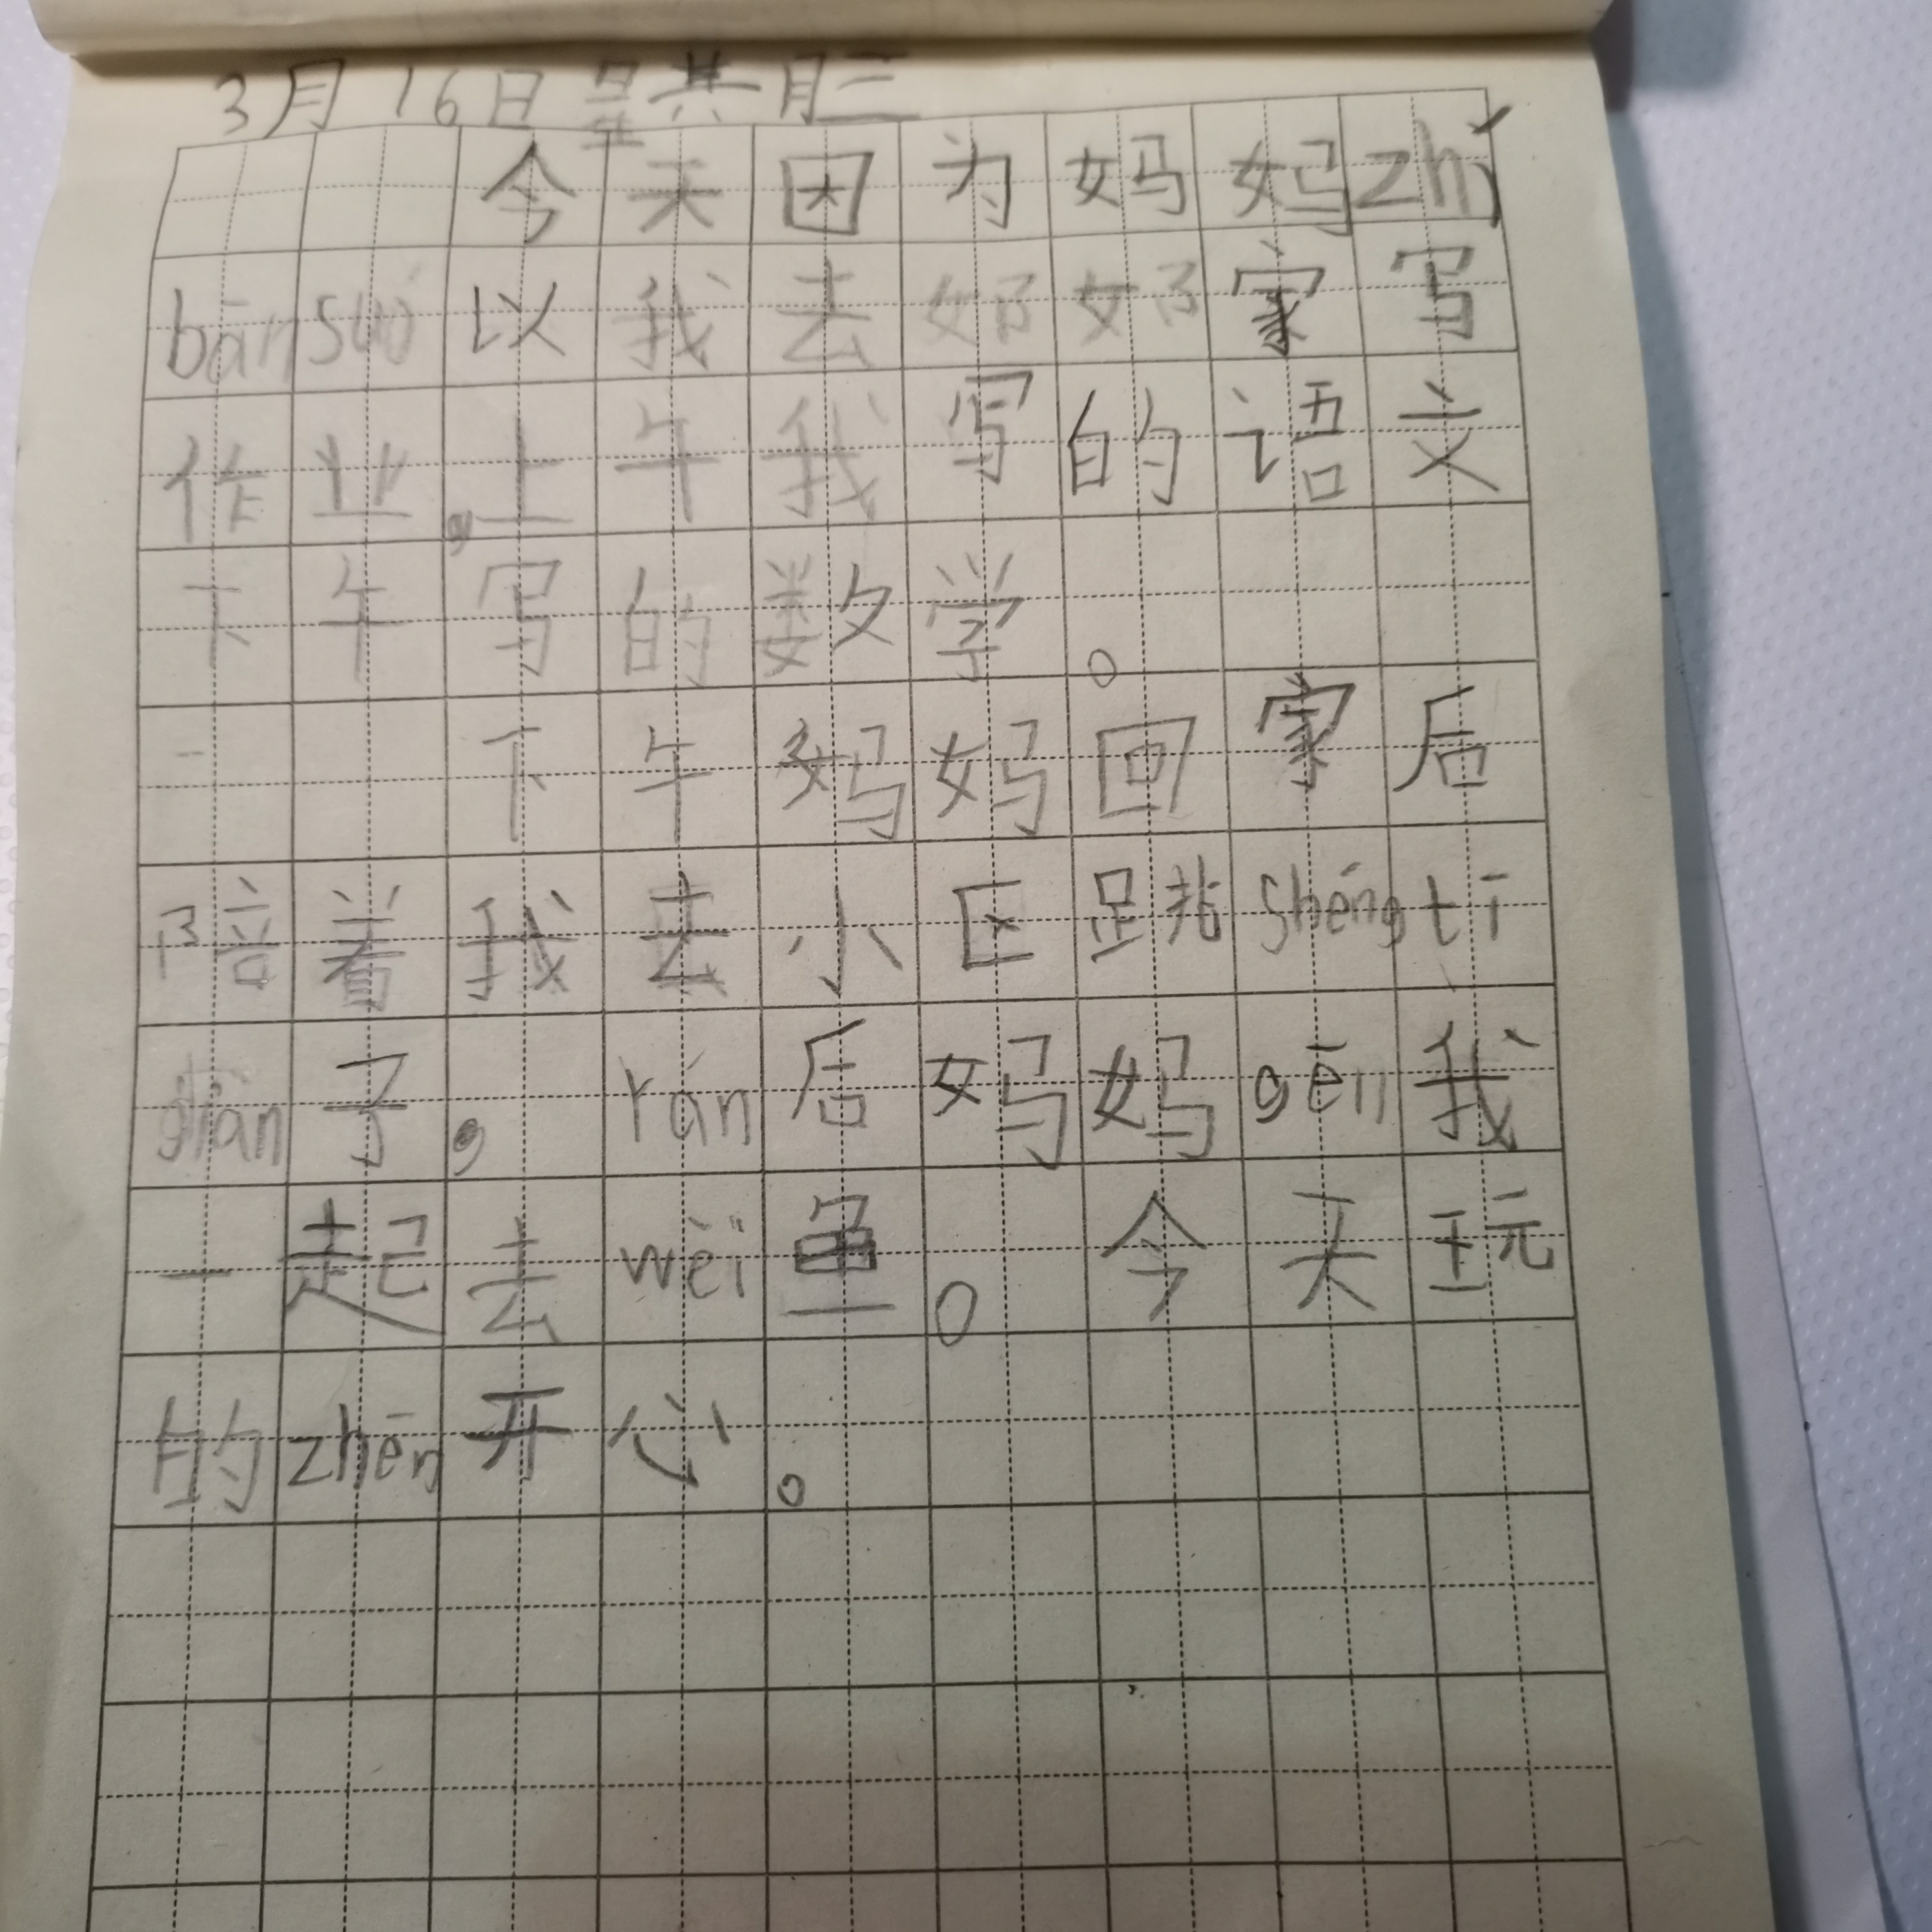 3月16日星其月三
今天因为妈妈zhí
bānsuó以我去奶奶家写
作业,上午我写的语文
下午写的数学。
下午妈妈回家后
陪着我去小区跳shéngtī
diàn子,rán后妈妈gēn我
一起去wèi鱼。今天玩
的zhēn开心。